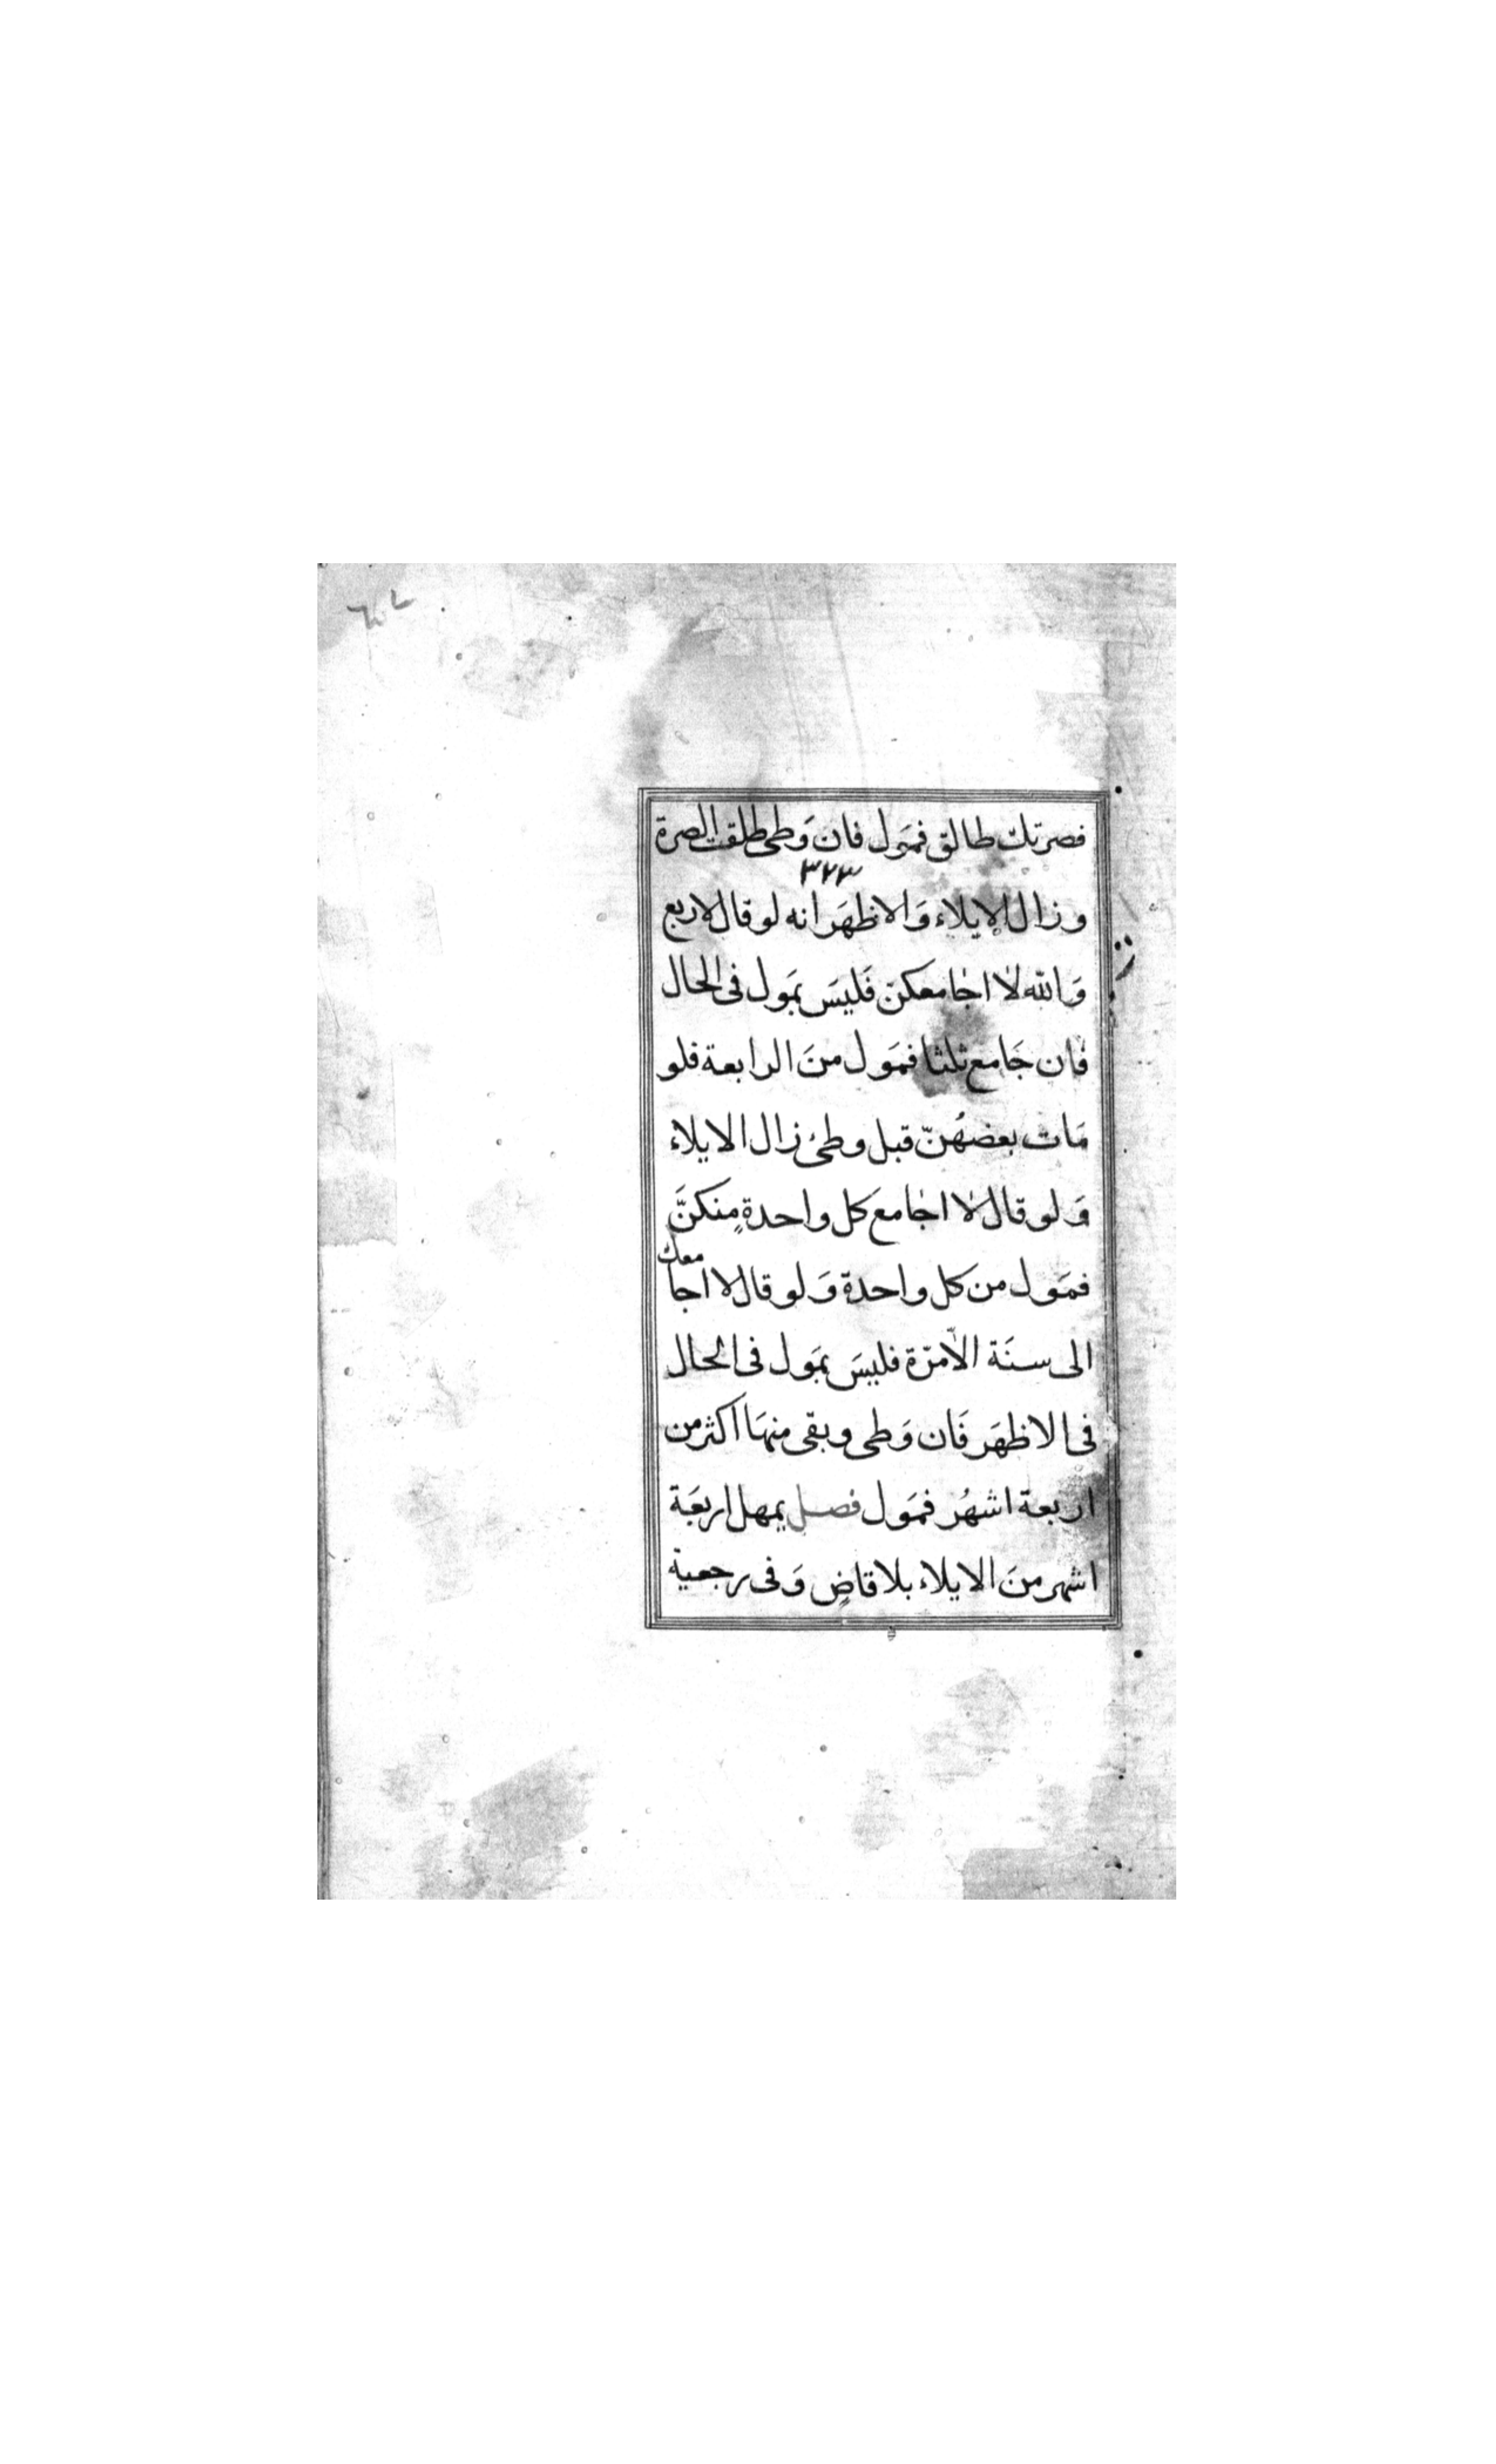 فضرتك طالق فمَول فان وَطى طلقت الضرة
٣٢٣
وزال الايلاء وَالاظهَر انه لو قال لاربع
وَالله لا اجامعكنّ فَليسَ بمَول فى الحال
فان جَامع ثلثا فمَول منَ الرابعة فلو
مَات بعضهُنّ قبل وطئ زال الايلاء
وَلو قال لا اجامعَ كل واحدةٍ منكنَّ
فمَول من كل واحدة وَلو قال لا اجامعك
الى سنَة الاّ مرّة فليسَ بمَول فى الحال
فى الاظهَر فَان وَطى وبقى منهَا اكثر من
اربعة اشهُر فمَول فصل يمهل اربعَة
اشهر منَ الايلاء بلا قاضٍ وَفى رجعية